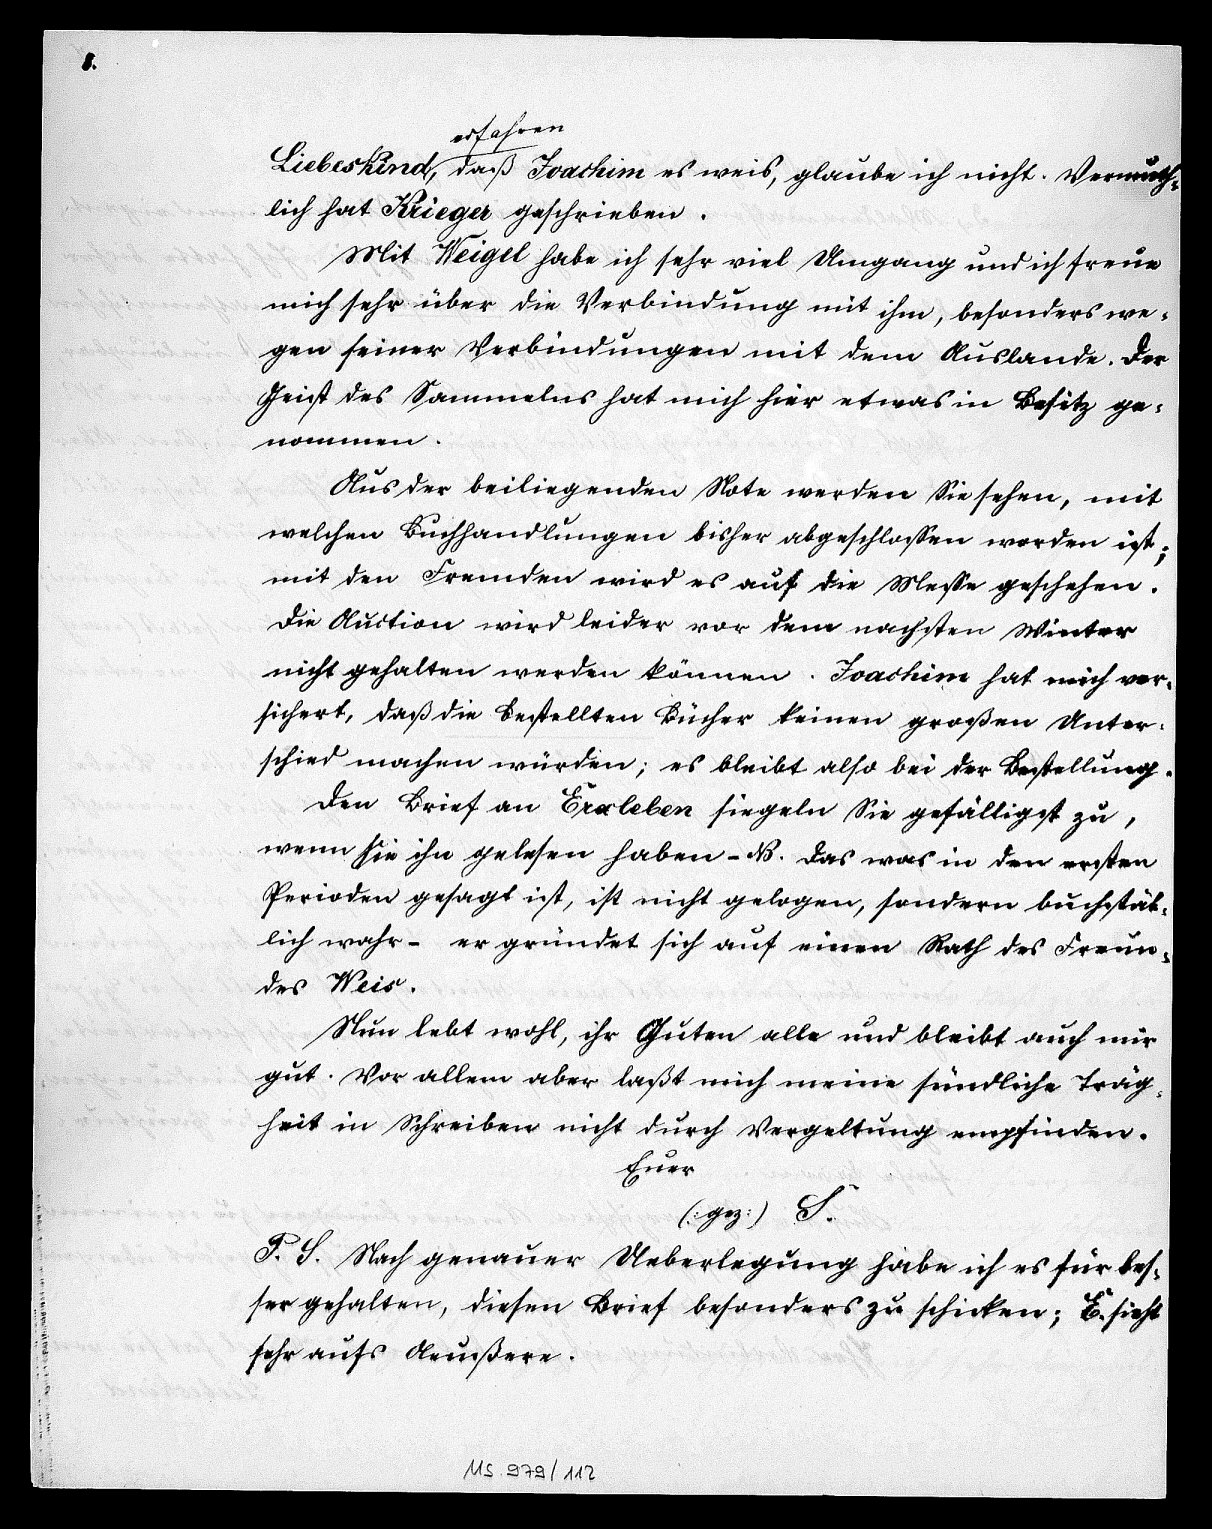 8.
erfahren
Liebeskind, daß Joachim es weis, glaube ich nicht. Vermuth-
lich hat Krieger geschrieben.
Mit Weigel habe ich sehr viel Umgang und ich freue
mich sehr über die Verbindung mit ihm, besonders we-
gen seiner Verbindungen mit dem Auslande. Der
Geist des Sammelns hat mich hier etwas in Besitz ge-
nommen.
Aus der beiliegenden Note werden Sie sehen, mit
welchen Buchhandlungen bisher abgeschlossen worden ist;
mit den Fremden wird es auf die Messe geschehen.
Die Auction wird leider vor dem nachsten Winter
nicht gehalten werden können. Joachim hat mich ver-
sichert, daß die bestellten Bücher keinen großen Unter-
schied machen würden; es bleibt also bei der Bestellung.
Den Brief an Erxleben siegeln Sie gefälligst zu,
wenn Sie ihn gelesen haben - NB. Das was in den ersten
Perioden gesagt ist, ist nicht gelogen, sondern buchstäb-
lich wahr - er gründet sich auf einen Rath des Freun-
des Weis.
Nun lebt wohl, ihr Guten alle und bleibt auch mir
gut. Vor allem aber laßt mich meine sündliche Träg-
heit in Schreiben nicht durch Vergeltung empfinden.
Euer
(:gez:) S.
P. S. Nach genauer Ueberlegung habe ich es für bes-
ser gehalten, diesen Brief besonders zu schicken; E. sieht
sehr aufs Aeußere.
MS. 979/112